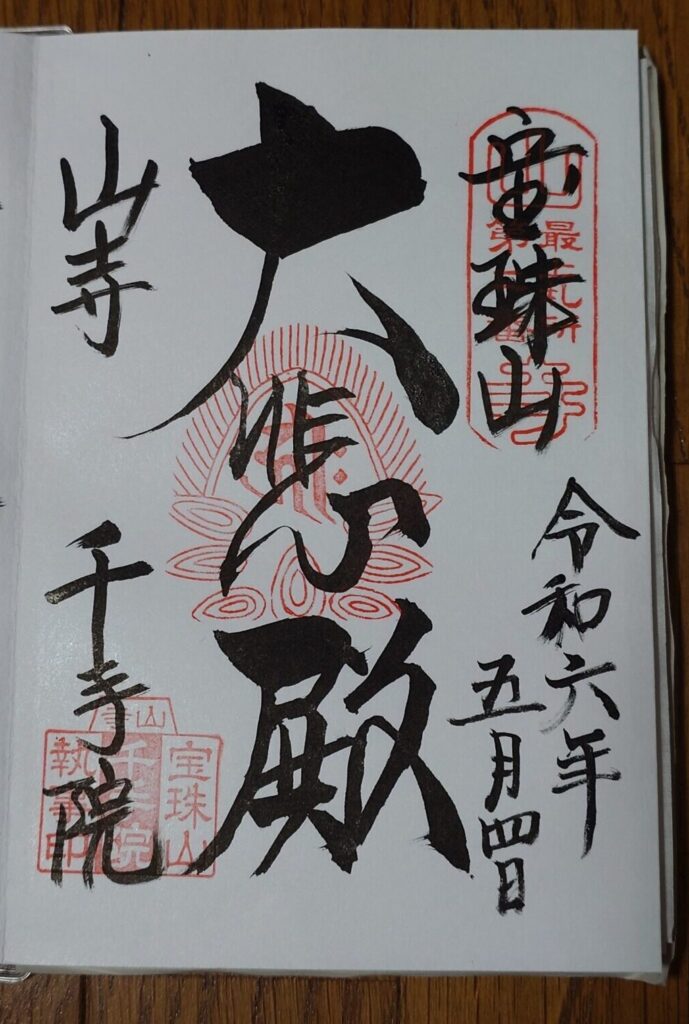 宝珠山
令和六年
五月四日
大悲殿
山寺
千手院
最
第
山寺
宝珠山
千手院
執事印